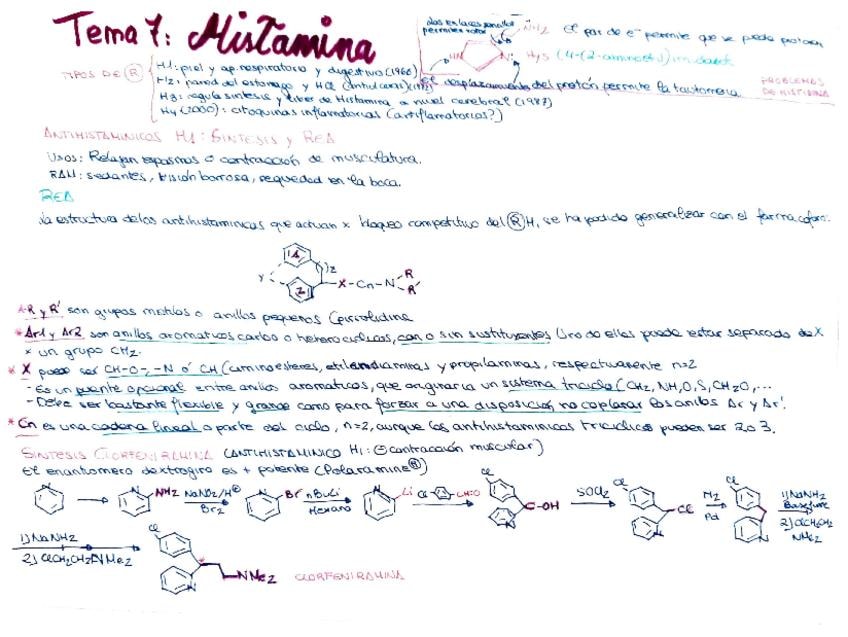 Tema 7: Histamina
dos enlaces sencillos permiten rotar
NH2
HN
N:
El par de e- permite que se pueda protonar
His (4-(2-aminoetil)imidazol)
El desplazamiento del protón permite la tautomería.
PROBLEMAS DE HISTIDINA
TIPOS DE R
H1: piel y ap. respiratorio y digestivo (1966)
H2: pared del estomago y HCl (antiulceras)
H3: regula sintesis y liber de Histamina a nivel cerebral (1987)
H4 (2000): citoquinas inflamatorias (antiflamatorios?)
ANTIHISTAMINICOS H1: SINTESIS y REA
Usos: Relajan espasmos o contracción de musculatura.
RAM: sedantes, visión borrosa, sequedad en la boca.
REA
la estructura de los antihistaminicos que actuan x bloqueo competitivo del R H1 se ha podido generalizar con el farmacoforo:
1
2
Y
)z
X-Cn-N
R
R'
*R y R' son grupos metilos o anillos pequeños (pirrolidina
*Ar1 y Ar2 son anillos aromaticos carbo o heterociclicos, con o sin sustituyentes Uno de ellos puede estar separado de X
x un grupo CH2.
* X puede ser CH-O-, -N ó CH (aminoesteres, etilendiaminas y propilaminas, respectivamente n=2
- Es un puente opcional entre anillos aromaticos, que originaria un sistema triciclo (CH2, NH, O, S, CH2O, ...
- Debe ser bastante flexible y grande como para forzar a una disposición no coplanar los anillos Ar y Ar'.
* Cn es una cadena lineal o parte del ciclo, n=2, aunque los antihistaminicos triciclicos pueden ser 2 o 3.
SINTESIS CLORFENIRAMINA (ANTIHISTAMINICO H1: contracción muscular)
El enantiomero dextrogiro es + potente (Polaramine®)
N
NH2
NaNO2/H⊕
Br2
Br
nBuLi
Hexano
Li
Cl
CHO
Cl
C-OH
SOCl2
Cl
Cl
H2
Pd
Cl
1) NaNH2
2) ClCH2CH2
NMe2
1) NaNH2
2) ClCH2CH2NMe2
Cl
*
N
NMe2
CLORFENIRAMINA